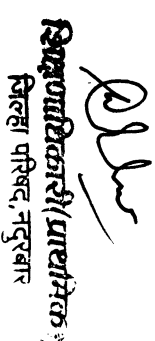 शिक्षणाधिकारी (प्राथमिक)
जिल्हा परिषद, नंदुरबार